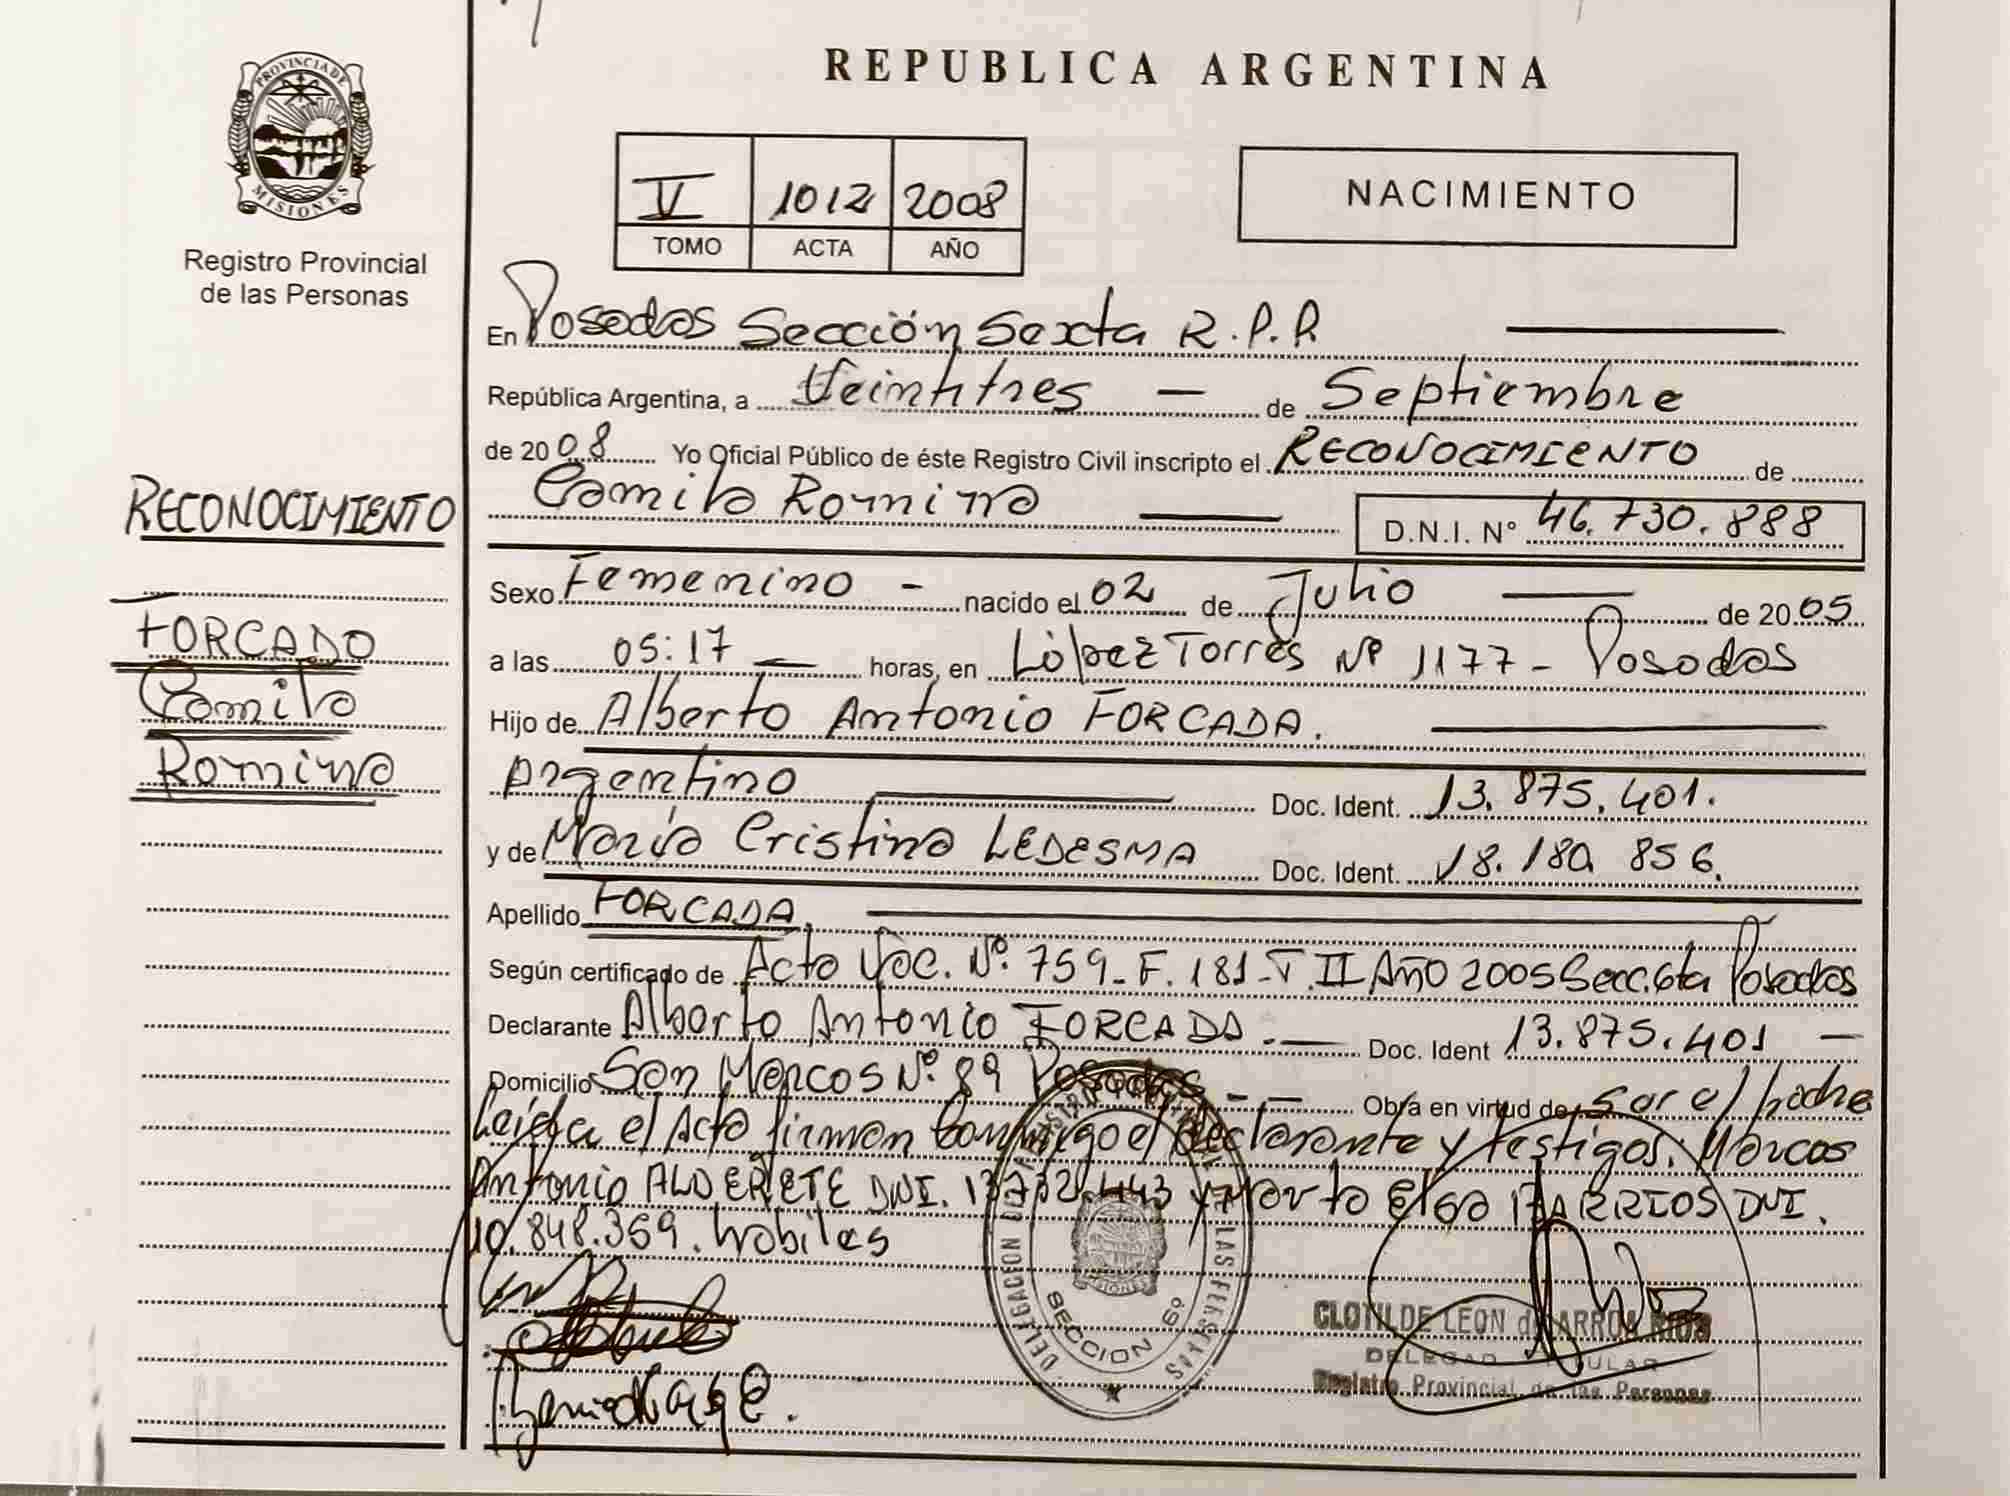 PROVINCIA DE
MISIONES
Registro Provincial
de las Personas
RECONOCIMIENTO
FORCADA
Camila
Romina
REPUBLICA ARGENTINA
V 1012 2008
TOMO ACTA AÑO
NACIMIENTO
En Posadas Sección Sexta R.P.P.
República Argentina, a Veintitres — de Septiembre
de 2008 Yo Oficial Público de éste Registro Civil inscripto el RECONOCIMIENTO de
Camila Romina — D.N.I. N° 46.730.888
Sexo Femenino - nacido el 02 de Julio — de 2005
a las 05:17 — horas, en López Torres Nº 1177 - Posadas
Hijo de Alberto Antonio FORCADA. —
Argentino — Doc. Ident. 13.875.401.
y de María Cristina LEDESMA Doc. Ident. 18.180 856.
Apellido FORCADA. —
Según certificado de Acta Nac. Nº. 759_ F. 181_T.II Año 2005 Secc. 6ta Posadas
Declarante Alberto Antonio FORCADA. — Doc. Ident 13.875.401 —
Domicilio San Marcos Nº. 89 Posadas - - Obra en virtud de ser el padre
Leída el Acta firman conmigo el declarante y testigos: Marcos
Antonio ALDERETE DNI. 13732.443 y Marta Elsa BARRIOS DNI.
10.848.359. habiles
DELEGACION DEL REGISTRO PROVINCIAL DE LAS PERSONAS
SECCION 6º
CLOTILDE LEON de ARROA RIOS
DELEGADA TITULAR
Registro Provincial de las Personas